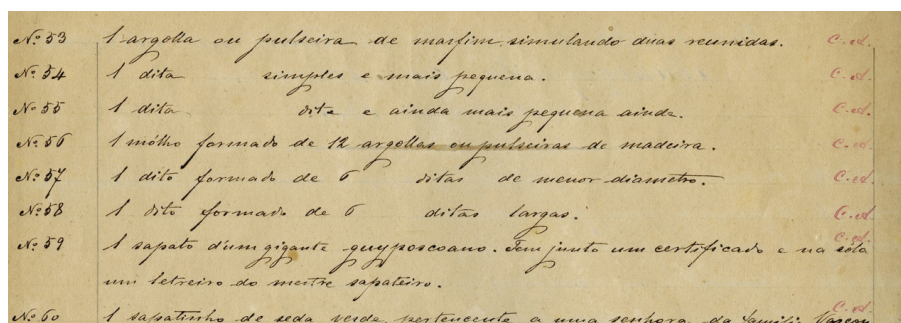 Nº 53 1 argolla ou pulseira de marfim, simulando duas reunidas. C. A.
Nº 54 1 dita simples e mais pequena. C. A.
Nº 55 1 dita dita e ainda mais pequena ainda. C. A.
Nº 56 1 mólho formado de 12 argollas ou pulseiras de madeira. C. A.
Nº 57 1 dito formado de 6 ditas de menor diametro. C. A.
Nº 58 1 dito formado de 6 ditas largas. C. A.
Nº 59 1 sapato d'um gigante guyposcoano. Tem junto um certificado e na sola C. A.
um letreiro do mestre sapateiro.
Nº 60 1 sapatinho de seda verde, pertencente a uma senhora da familia C. A.